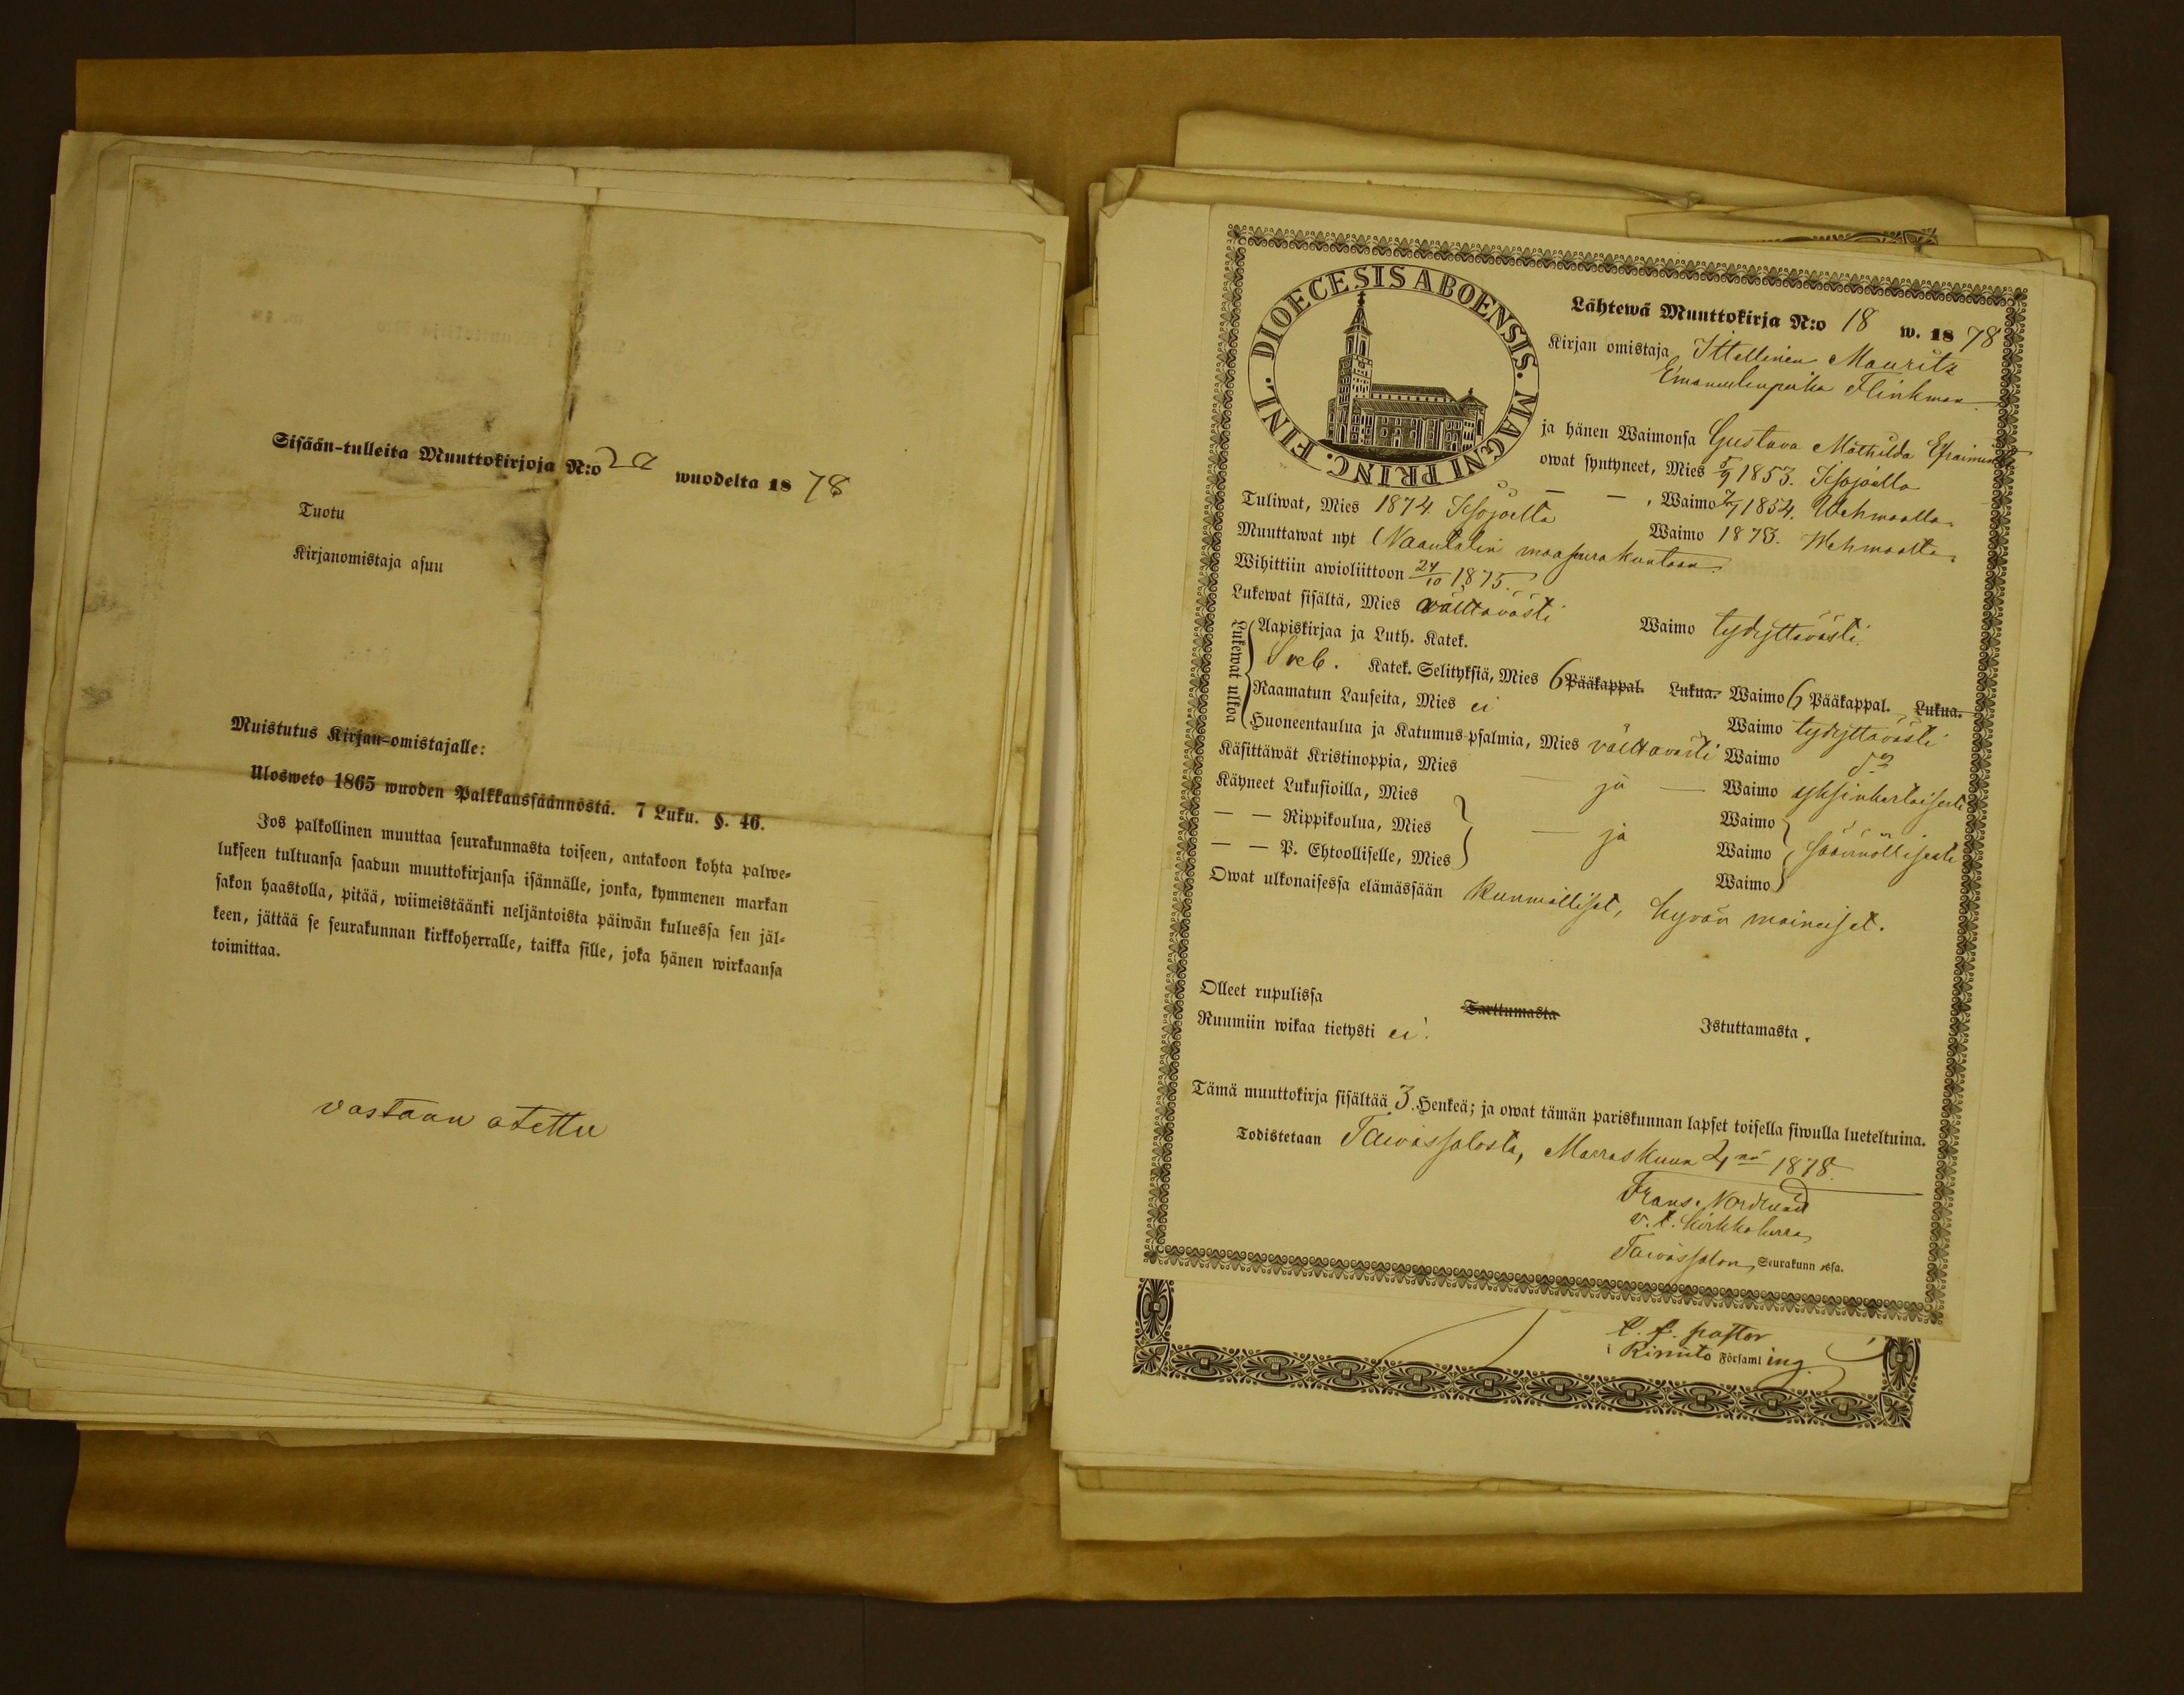 Sisään-tulleita Muuttokirjoja N:o 2a wuodelta 1878
Tuotu
Kirjanomistaja asuu
Muistutus Kirjan-omistajalle:
Ulosweto 1865 wuoden Palkkaussäännöstä. 7 Luku. §. 46.
Jos palkollinen muuttaa seurakunnasta toiseen, antakoon kohta palwe-
lukseen tultuansa saadun muuttokirjansa isännälle, jonka, kymmenen markan
sakon haastolla, pitää, wiimeistäänki neljäntoista päiwän kuluessa sen jäl-
keen, jättää se seurakunnan kirkkoherralle, taikka sille, joka hänen wirkaansa
toimittaa.
vastaan otettu
DIOECESIS ABOENSIS. MAGNI PRINC. FINL.
Lähtewä Muuttokirja N:o 18 w. 1878
Kirjan omistaja Itsellinen Mauritz
Emanuelinpoika Flinkman
ja hänen Waimonsa Gustava Mathilda
owat syntyneet, Mies 5/9 1853. Isojoella
— — , Waimo 1854. Wehmaalla.
Tuliwat, Mies 1874. Isojoelta Waimo 1873. Wehmaalta.
Muuttawat nyt Naantalin maaseurakuntaan.
Wihittiin awioliittoon 24/10 1875.
Lukewat sisältä, Mies välttävästi Waimo tydyttävästi.
Lukewat ulkoa
Aapiskirjaa ja Luth. Katek.
Sveb. Katek. Selityksiä, Mies 6 Pääkappal. Lukua. Waimo 6 Pääkappal. Lukua.
Raamatun Lauseita, Mies ei Waimo tydyttävästi
Huoneentaulua ja Katumus-psalmia, Mies välttävästi Waimo do
Käsittäwät Kristinoppia, Mies — ja — Waimo yksinkertaisesti
Käyneet Lukusioilla, Mies Waimo
— — Rippikoulua, Mies — ja Waimo säännöllisesti
— — P. Ehtoolliselle, Mies Waimo
Owat ulkonaisessa elämässään kunnialliset, hyvän maineiset.
Olleet rupulissa Tarttumasta Istuttamasta.
Ruumiin wikaa tietysti ei.
Tämä muuttokirja sisältää 3. Henkeä; ja owat tämän pariskunnan lapset toisella siwulla lueteltuina.
Todistetaan Taivassalosta, Marraskuun 4nä 1878.
Frans. Nordlund
v. t. kirkkoherra
Taivassalon Seurakunnassa.
t. f. pastor
i Rimito Församling